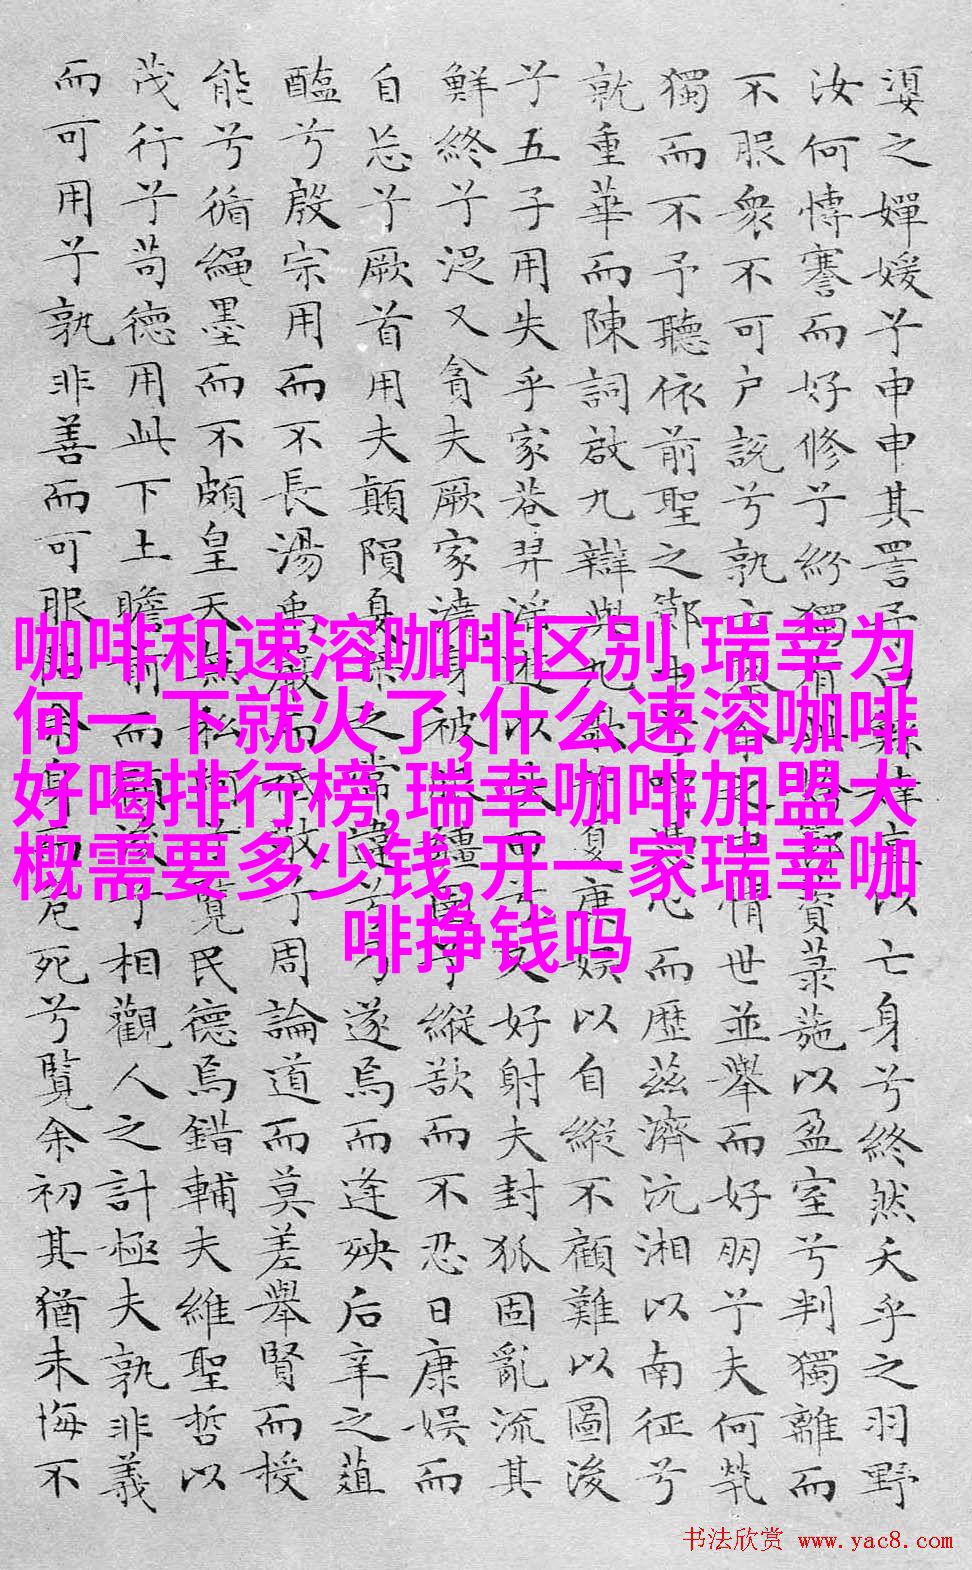 咖啡和速溶咖啡区别,瑞幸为
何一下就火了,什么速溶咖啡
好喝排行榜,瑞幸咖啡加盟大
概需要多少钱,开一家瑞幸咖
啡挣钱吗
之嬋媛兮申申其詈予曰以亡身兮終然夭乎之羽野
汝何博謇而好修兮紛獨有此資菉葹以盈室兮判獨離而
不服衆不可户說兮孰云中情世並舉而好朋兮夫何茕
獨而不予聽依前聖之節心而歷茲濟沅湘以南征兮
就重華而陳詞啟九辯與九歌夏康娛以自縱不顧難以圖後
兮五子用失乎家巷羿淫遊以佚田兮又好射夫封狐固亂流其
鮮終兮浞又貪夫厥家澆身被服疆圉兮縱欲而不忍日康娛而
自忘兮厥首用夫顛隕夏桀之常違兮遂焉而逢殃后辛之菹
醢兮殷宗用而不長湯禹嚴而祗敬兮周論道而莫差舉賢而授
能兮循繩墨而不頗皇天無私阿兮覽民德焉錯輔夫維聖哲以
茂行兮苟德用此下土瞻前而顧後兮相觀人之計極夫孰非義
而可用兮孰非善而可服阽余身而危死兮覽余初其猶未悔不
书法欣赏 www.yac8.com